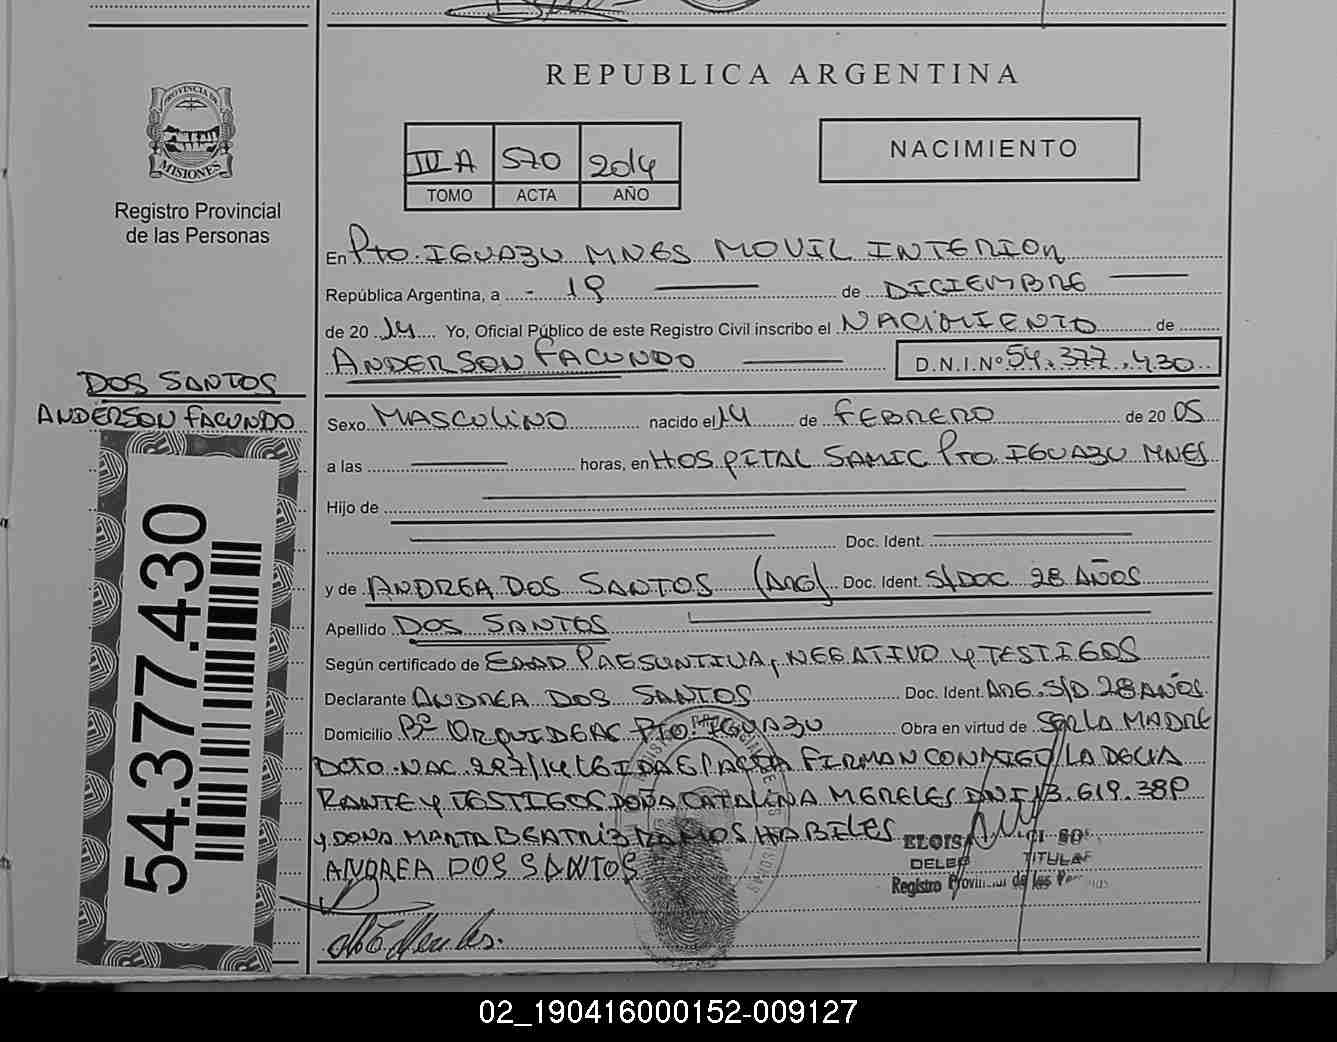 REPUBLICA ARGENTINA
PROVINCIA DE
MISIONES
Registro Provincial
de las Personas
IV A 570 2014
TOMO ACTA AÑO
NACIMIENTO
En Pto. IGUAZU MNES MOVIL INTERIOR
República Argentina, a - 19 de DICIEMBRE
de 20 14 Yo, Oficial Público de este Registro Civil inscribo el NACIMIENTO de
ANDERSON FACUNDO D.N.I. Nº 54.377.430
DOS SANTOS
ANDERSON FACUNDO
54.377.430
Sexo MASCULINO nacido el 14 de FEBRERO de 20 05
a las horas, en HOSPITAL SAMIC Pto. IGUAZU MNES
Hijo de
Doc. Ident.
y de ANDREA DOS SANTOS (ARG) Doc. Ident. S/DOC 28 AÑOS
Apellido DOS SANTOS
Según certificado de EDAD PRESUNTIVA, NEGATIVO y TESTIGOS
Declarante ANDREA DOS SANTOS Doc. Ident. ARG. S/D 28 AÑOS
Domicilio Bº ORQUIDEAS Pto. IGUAZU Obra en virtud de SER LA MADRE
DCTO. NAC. 297/14 LEIDA EL ACTA FIRMAN CONMIGO LA DECLA
RANTE y TESTIGOS DOÑA CATALINA MERELES DNI 13.619.389
y DOÑA MARTA BEATRIZ RAMOS HABILES
ANDREA DOS SANTOS
ELOISA
TITULAR
Registro Provincial de las Personas
02_190416000152-009127